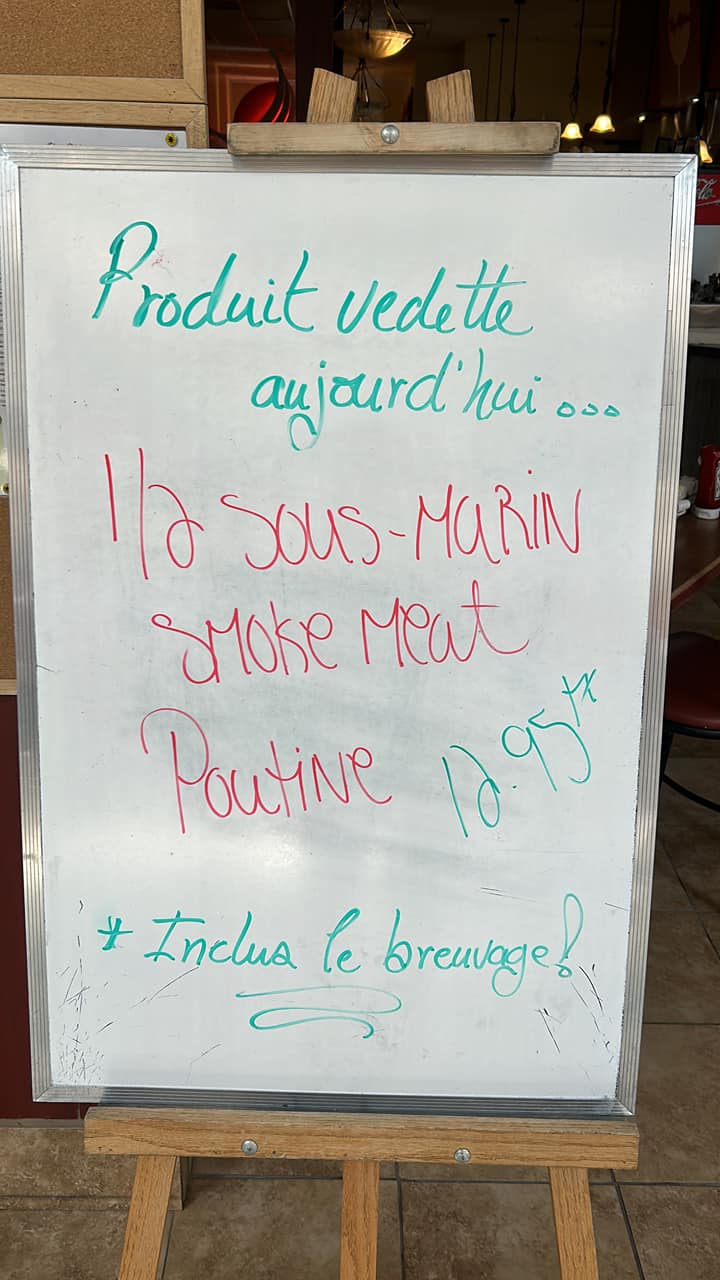 Produit vedette
aujourd'hui...
1/2 SOUS-MARIN
SMOKE MEAT
POUTINE 12.95 tx
* Inclus le breuvage!